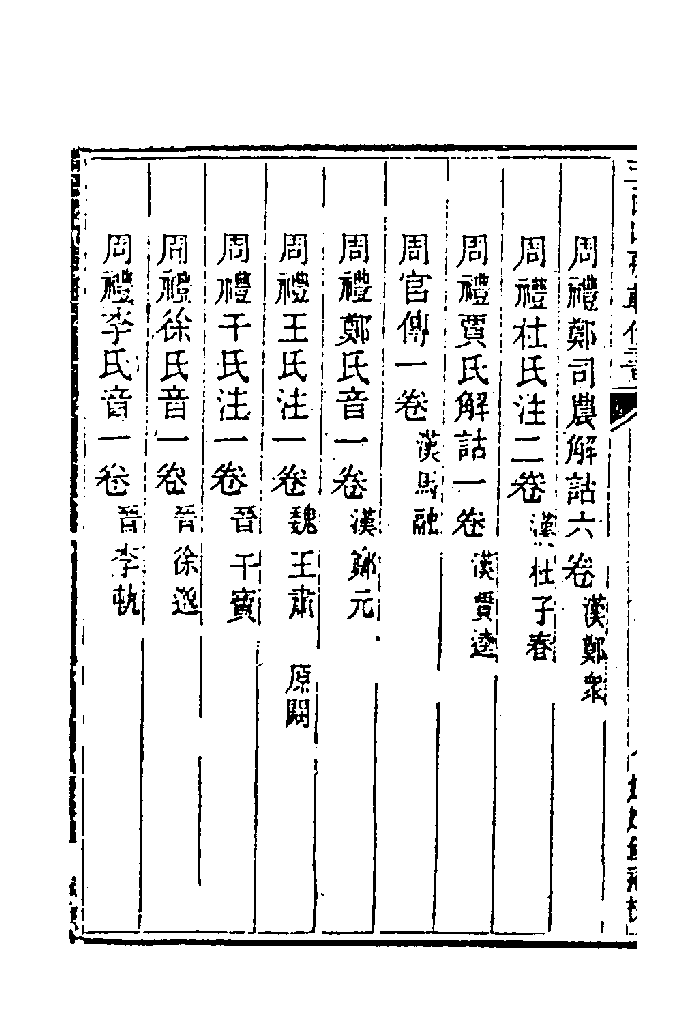 周禮鄭司農解詁六卷漢鄭衆
周禮杜氏注二卷漢杜子春
周禮賈氏解詁一卷漢賈逵
周官傳一卷漢馬融
周禮鄭氏音一卷漢鄭元
周禮王氏注一卷魏王肅 原闕
周禮干氏注一卷晉干寳
周禮徐氏音一卷晉徐邈
周禮李氏音一卷晉李軌